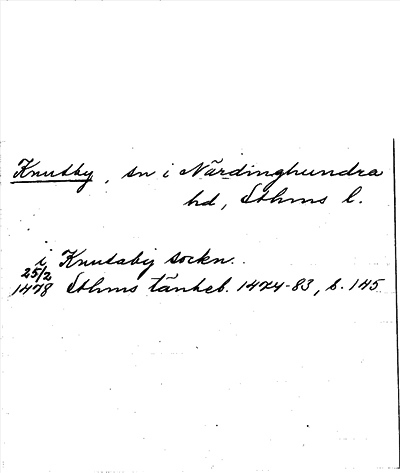 Knutby, sn i Närdinghundra
hd, Sthms l.
i Knutsaby sockn.
25/2
1478 Sthms tänkeb. 1474-83, s. 145